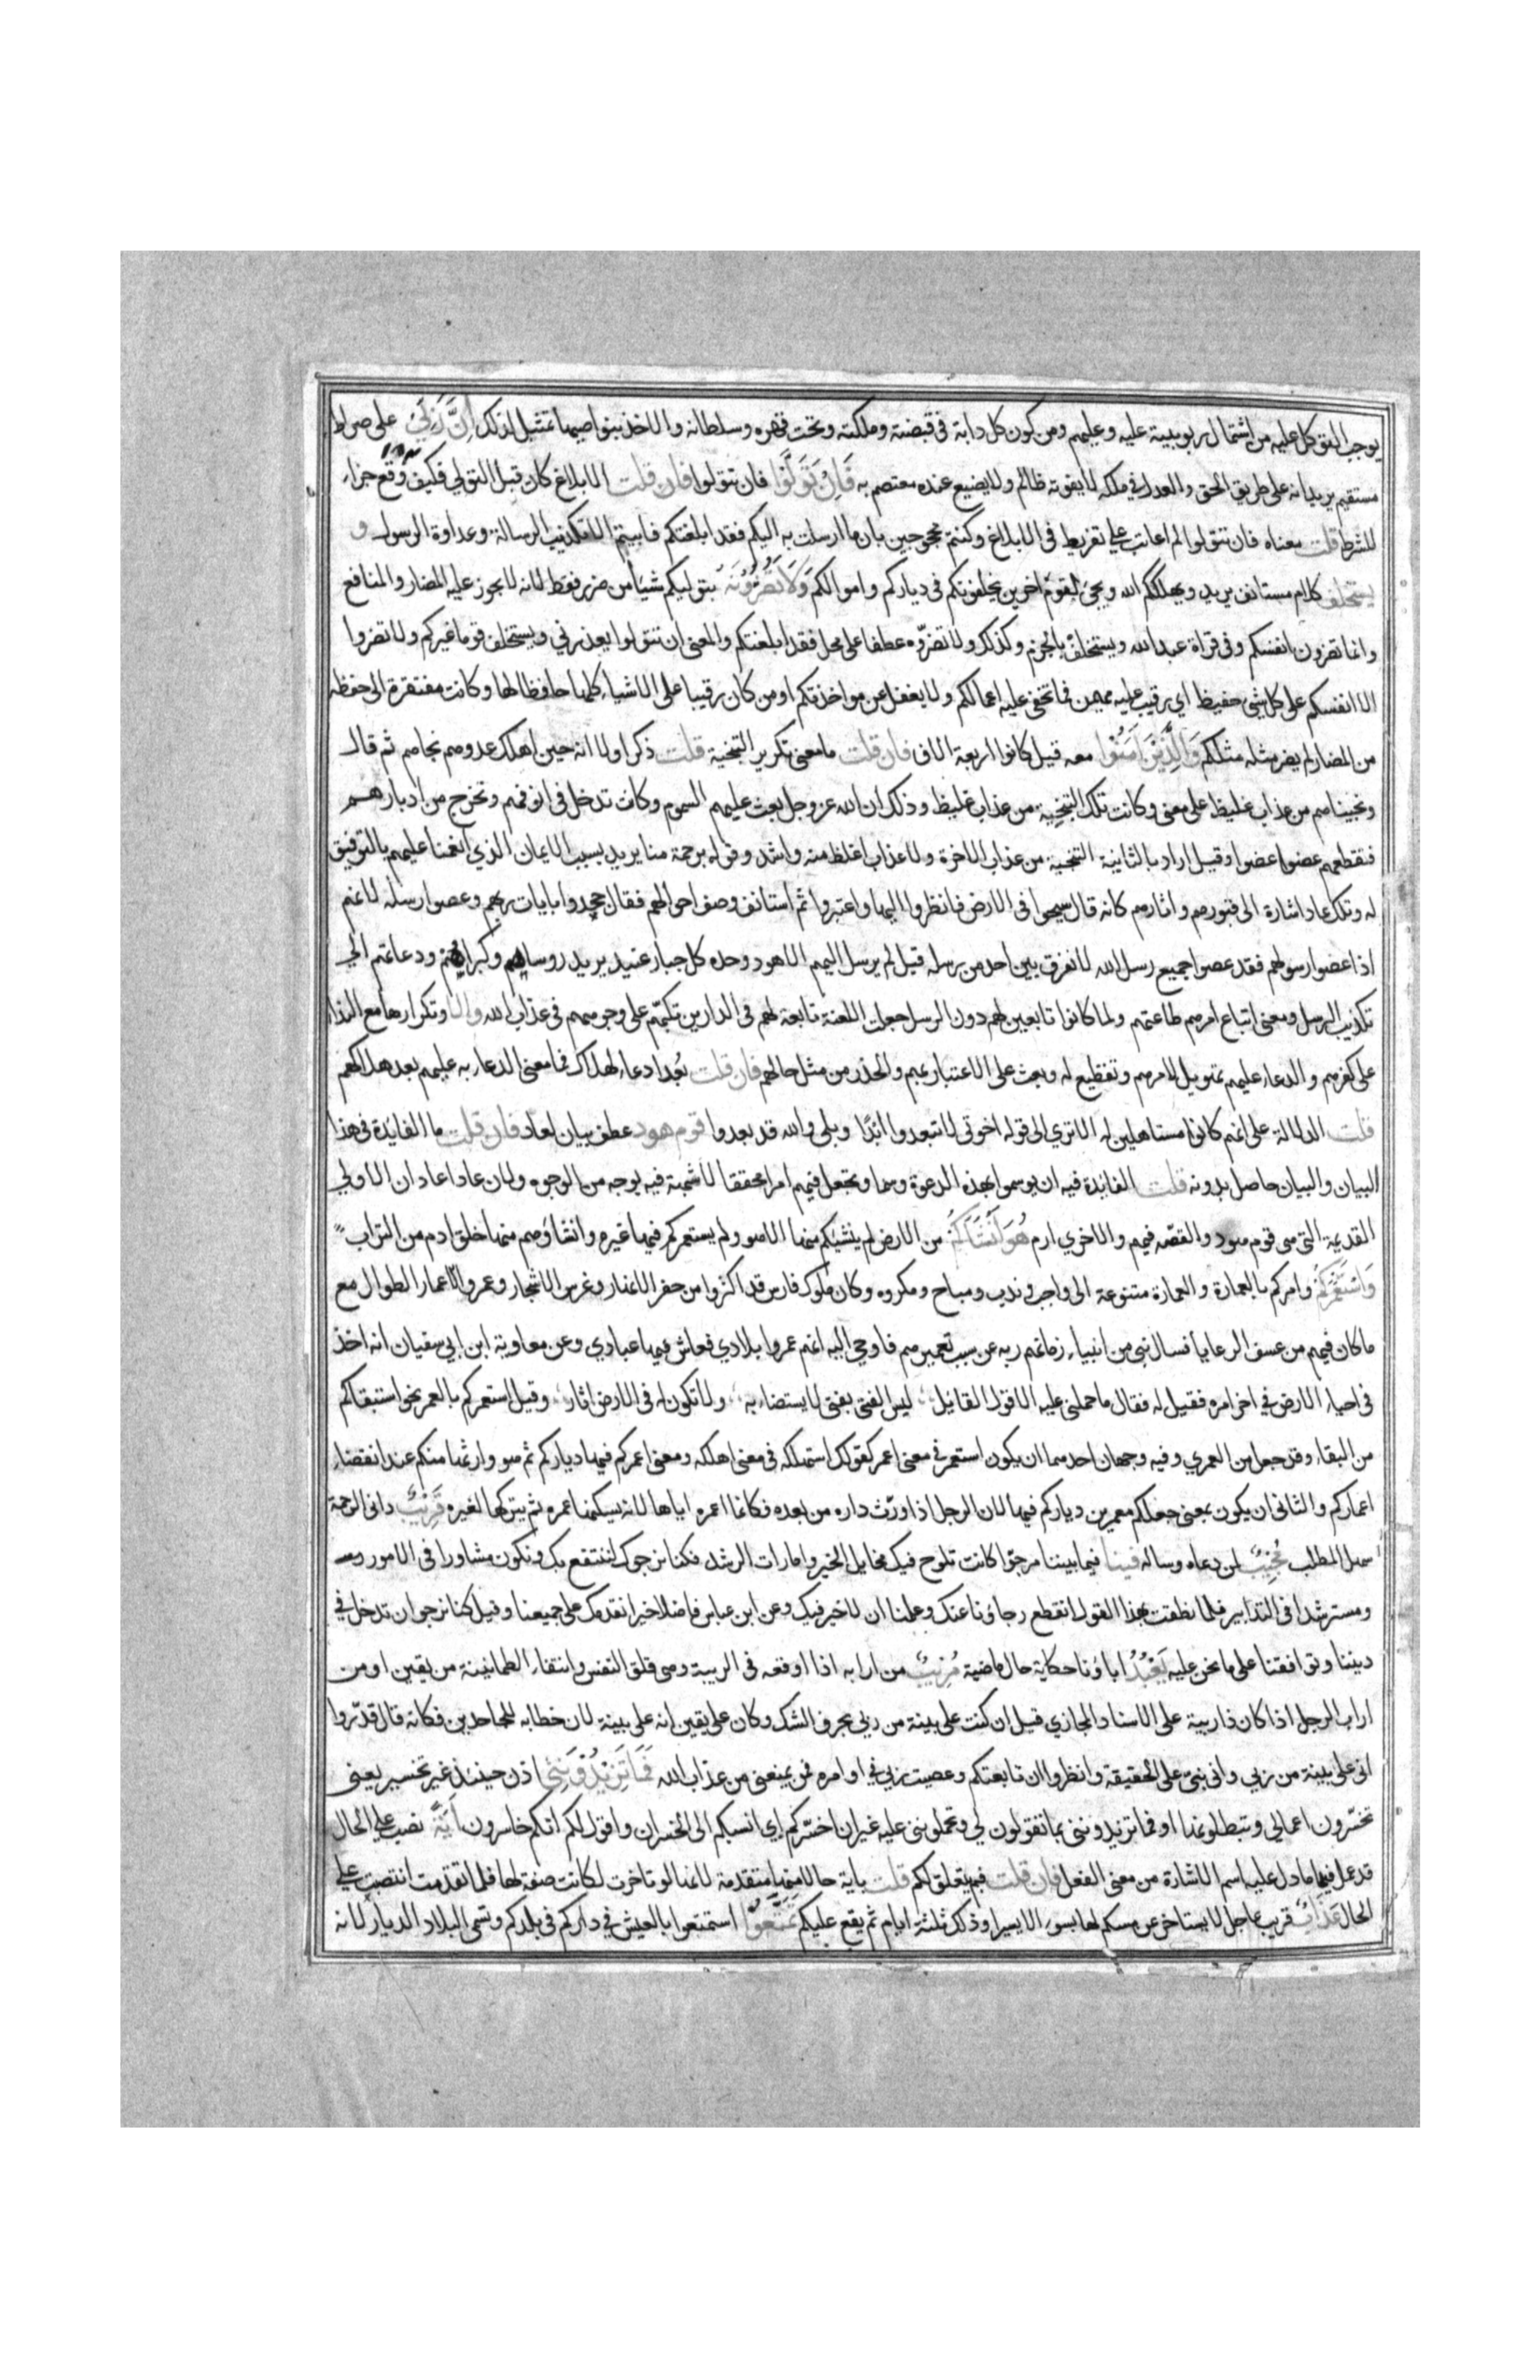 يوجب التوكل عليه من اشتمال ربوبيته عليه وعليهم ومن كون كل دابة في قبضته وملكته وتحت قهره وسلطانه والاخذ بنواصيها تمثيل لذلك اِنَّ رَبِّيْ على صراط
مستقيم يريد انه على طريق الحق والعدل في ملكه لا يفوته ظالم ولا يضيع عنده معتصم به فَاِنْ تَوَلَّوْا فان تتولوا فان قلت الابلاغ كان قبل التولي فكيف وقع جزاء
للشرط قلت معناه فان تتولوا لم اعاتب على تفريط في الابلاغ وكنتم محجوجين بان ما ارسلت به اليكم فقد ابلغتكم فابيتم الا تكذيب الرسالة وعداوة الرسول و
يستخلف كلام مستانف يريد ويهلككم الله ويجئ بقوم اخرين يخلفونكم في دياركم واموالكم وَلَا تَضُرُّوْنَهُ بتوليكم شيأ من ضرر قط لانه لا يجوز عليه المضار والمنافع
وانما تضرون انفسكم وفي قراة عبد الله ويستخلف بالجزم وكذلك ولا تضروه عطفا على محل فقد ابلغتكم والمعنى ان تتولوا يعذرني ويستخلف قوما غيركم ولا تضروا
الا انفسكم على كل شيئ حفيظ اي رقيب عليه مهيمن فما تخفى عليه اعمالكم ولا يغفل عن مواخذتكم او من كان رقيبا على الاشياء كلها حافظا لها وكانت مفتقرة الى حفظه
من المضار لم يضر مثله مثلكم وَالَّذِيْنَ اٰمَنُوْا معه قيل كانوا اربعة الاف فان قلت ما معنى تكرير التنجية قلت ذكر اولا انه حين اهلك عدوهم نجاهم ثم قال
ونجيناهم من عذاب غليظ على معنى وكانت تلك التنجية من عذاب غليظ وذلك ان الله عز وجل بعث عليهم السموم وكانت تدخل في انوفهم وتخرج من ادبارهم
فتقطعهم عضوا عضوا وقيل اراد بالثانية التنجية من عذاب الاخرة ولا عذاب اغلظ منه واشد وقوله برحمة منا يريد بسبب الايمان الذي انعمنا عليهم بالتوفيق
له وتلك عاد اشارة الى قبورهم واثارهم كانه قال سيحوا في الارض فانظروا اليها واعتبروا ثم استانف وصف احوالهم فقال جحدوا بايات ربهم وعصوا رسله لانهم
اذا عصوا رسولهم فقد عصوا جميع رسل الله لا نفرق بين احد من رسله قيل لم يرسل اليهم الا هود وحده كل جبار عنيد يريد روساهم وكبراهم ودعاتهم الى
تكذيب الرسل ومعنى اتباع امرهم طاعتهم ولما كانوا تابعين لهم دون الرسل جعلت اللعنة تابعة لهم في الدارين تكبهم على وجوههم في عذاب الله والا وتكرارها مع النداء
على كفرهم والدعاء عليهم تهويل لامرهم وتفظيع له وبعث على الاعتبار بهم والحذر من مثل حالهم فان قلت بُعْدا دعاء لهلاك فما معنى الدعاء به عليهم بعد هلاكهم
قلت الدلالة على انهم كانوا مستاهلين له الا تري الى قوله اخوتي لا تبعدوا ابدًا وبلى والله قد بعدوا قوم هود عطف بيان لعاد فان قلت ما الفايدة في هذا
البيان والبيان حاصل بدونه قلت الفايدة فيه ان يوسموا بهذه الدعوة وسما وتجعل فيهم امرا محققا لا شبهة فيه بوجه من الوجوه ولان عادا عادان الاولي
القديمة التي هي قوم هود والقصة فيهم والاخري ارم هُوَ اَنْشَاَكُمْ من الارض لم ينشئكم منها الا هو ولم يستعمركم فيها غيره وانشاؤهم منها خلق ادم من التراب
وَاسْتَعْمَرَكُمْ وامركم بالعمارة والعمارة متنوعة الى واجب وندب ومباح ومكروه وكان ملوك فارس قد اكثروا من حفر الانهار وغرس الاشجار وعمروا الاعمار الطوال مع
ما كان فيهم من عسف الرعايا فسال نبي من انبياء زمانهم ربه عن سبب تعميرهم فاوحى اليه انهم عمروا بلادي فعاش فيها عبادي وعن معاوية ابن ابي سفيان انه اخذ
في احياء الارض في اخر امره فقيل له فقال ما حملني عليه الا قول القائل ليس الفتى بفتى لا يستضاء به ولا تكون له في الارض اثار وقيل استعمركم بالعمر نحو استبقاكم
من البقاء وقد جعل من العمري وفيه وجهان احدهما ان يكون استعمر في معنى اعمر كقولك استهلكه في معنى اهلكه ومعنى اعمركم فيها دياركم ثم هو وارثها منكم عند انقضاء
اعماركم والثاني ان يكون بمعنى جعلكم معمرين دياركم فيها لان الرجل اذا ورث داره من بعده فكانما اعمره اياها لانه يسكنها عمره ثم يتركها لغيره قَرِيْبٌ داني الرحمة
سهل المطلب مُجِيْبٌ لمن دعاه وساله فينا فيما بيننا مرجوا كانت تلوح فيك مخايل الخير وامارات الرشد فكنا نرجوك لننتفع بك وتكون مشاورا في الامور
ومسترشدا في التدابير فلما نطقت بهذا القول انقطع رجاؤنا عنك وعلمنا ان لا خير فيك وعن ابن عباس فاضلا خيرا نقدمك على جميعنا وقيل كنا نرجو ان تدخل في
ديننا وتوافقنا على ما نحن عليه يَعْبُدُ اباؤنا حكاية حال ماضية مُرِيْبٌ من ارابه اذا اوقعه في الريبة وهي قلق النفس وانتفاء الطمانينة من يقين او من
اراب الرجل اذا كان ذا ريبة على الاسناد المجازي قيل ان كنت على بينة من ربي بحرف الشك وكان على يقين انه على بينة لان خطابه للجاحدين فكانه قال قدروا
اني على بينة من ربي واني نبي على الحقيقة وانظروا ان تابعتكم وعصيت ربي في اوامره فمن يمنعني من عذاب الله فَمَا تَزِيْدُوْنَنِيْ اذن حينئذ غير تخسير يعنى
تخسّرون اعمالي وتبطلونها او فما تزيدونني بما تقولون لي وتحملونني عليه غير ان اخسّركم اي انسبكم الى الخسران واقول لكم انكم خاسرون اٰيَةً نصب على الحال
قد عمل فيها ما دل عليه اسم الاشارة من معنى الفعل فان قلت فبم يتعلق لكم قلت باية حالا منها متقدمة لانها لو تاخرت لكانت صفة لها فلما تقدمت انتصبت على
الحال عَذَابٌ قريب عاجل لا يستاخر عن مسكم لها بسوء الا يسيرا وذلك ثلثة ايام ثم يقع عليكم تَمَتَّعُوْا استمتعوا بالعيش في داركم في بلدكم وتسمى البلاد الديار لانه